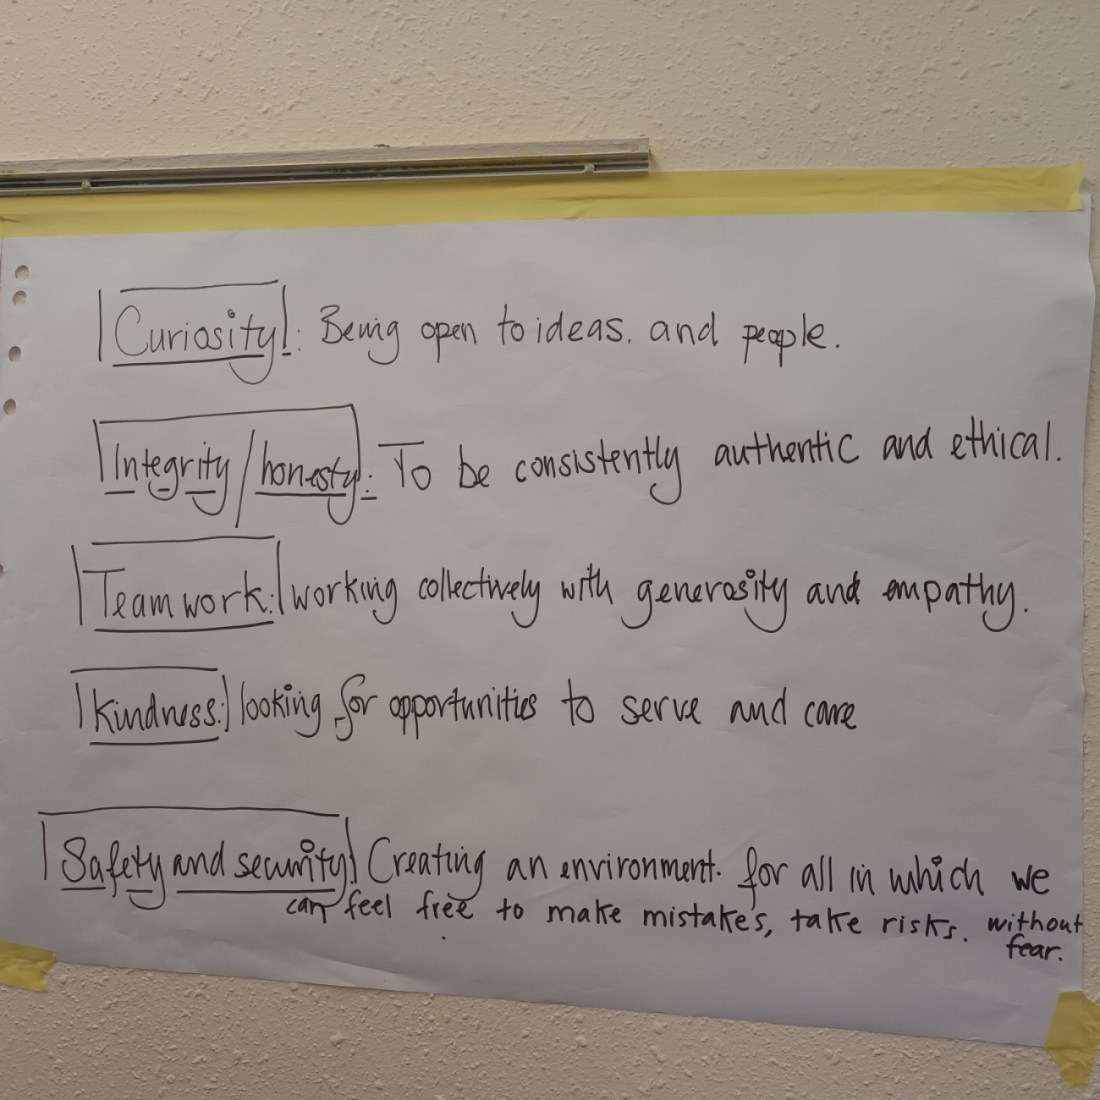 Curiosity: Being open to ideas. and people.
Integrity/honesty: To be consistently authentic and ethical.
Teamwork: working collectively with generosity and empathy.
Kindness: looking for opportunities to serve and care
Safety and security: Creating an environment. for all in which we
can feel free to make mistakes, take risks. without
fear.